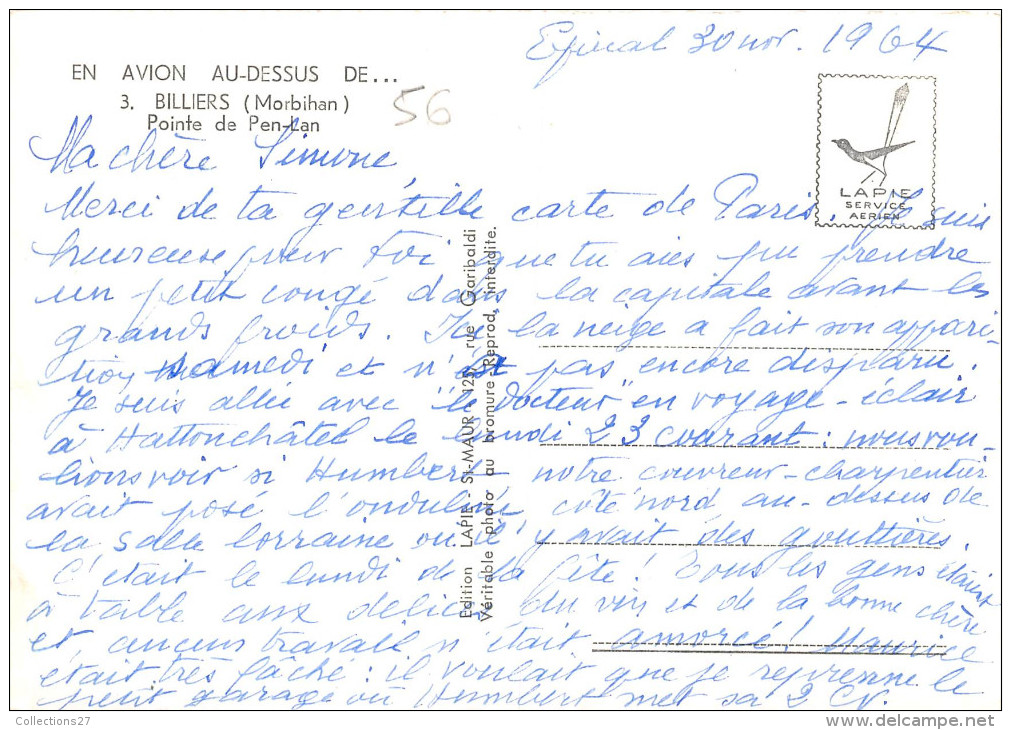 Epinal 30 nov. 1964
EN AVION AU-DESSUS DE...
3. BILLIERS (Morbihan)
Pointe de Pen-Lan
56
LAPIE
SERVICE
AERIEN
Ma chère Simone,
Merci de ta gentille carte de Paris. Je suis
heureuse pour toi que tu aies pu prendre
un petit congé dans la capitale avant les
grands froids. Ici la neige a fait son appari-
tion samedi et n'est pas encore disparu.
Je suis allée avec "le Docteur" en voyage-éclair
à Hattonchâtel le lundi 23 courant : nous vou-
lions voir si Humbert, notre couvreur-charpentier
avait posé l'onduline, côté nord au-dessus de
la salle lorraine où il y avait des gouttières.
C'était le lundi de la fête! Tous les gens étaient
à table aux délices du vin et de la bonne chère
et aucun travail n'était amorcé! Maurice
était très fâché : il voulait que je reprenne le
petit garage où Humbert met sa 2 CV.
Edition LAPIE - St-MAUR - 125, rue Garibaldi
Véritable photo au bromure - Reprod. interdite.
Collections27
www.delcampe.net